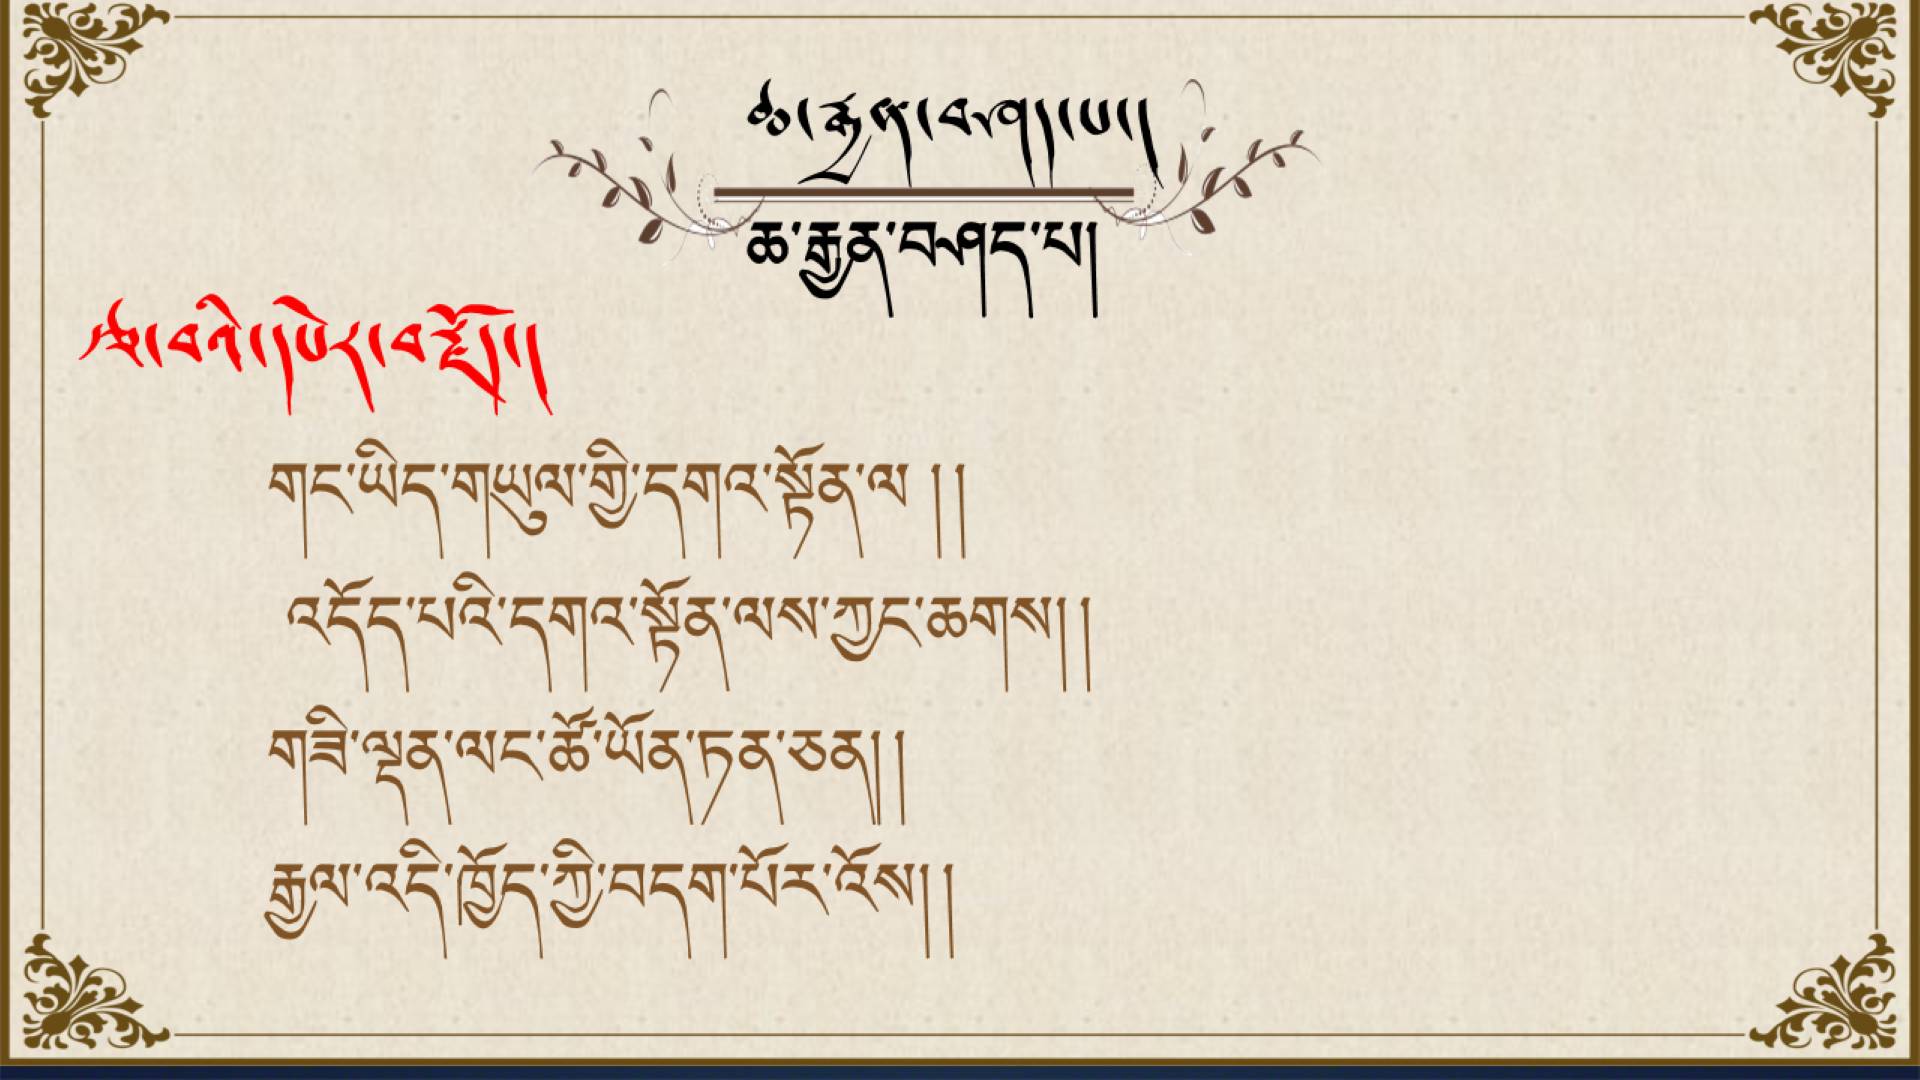 ཆ་རྐྱེན་བཤད་པ།
ཆ་རྒྱན་བཤད་པ།
གང་ཡིད་གཡུལ་གྱི་དགའ་སྟོན་ལ །།
འདོད་པའི་དགའ་སྟོན་ལས་ཀྱང་ཆགས།།
གཟི་ལྡན་ལང་ཚོ་ཡོན་ཏན་ཅན།།
རྒྱལ་འདི་ཁྱོད་ཀྱི་བདག་པོར་འོས།།